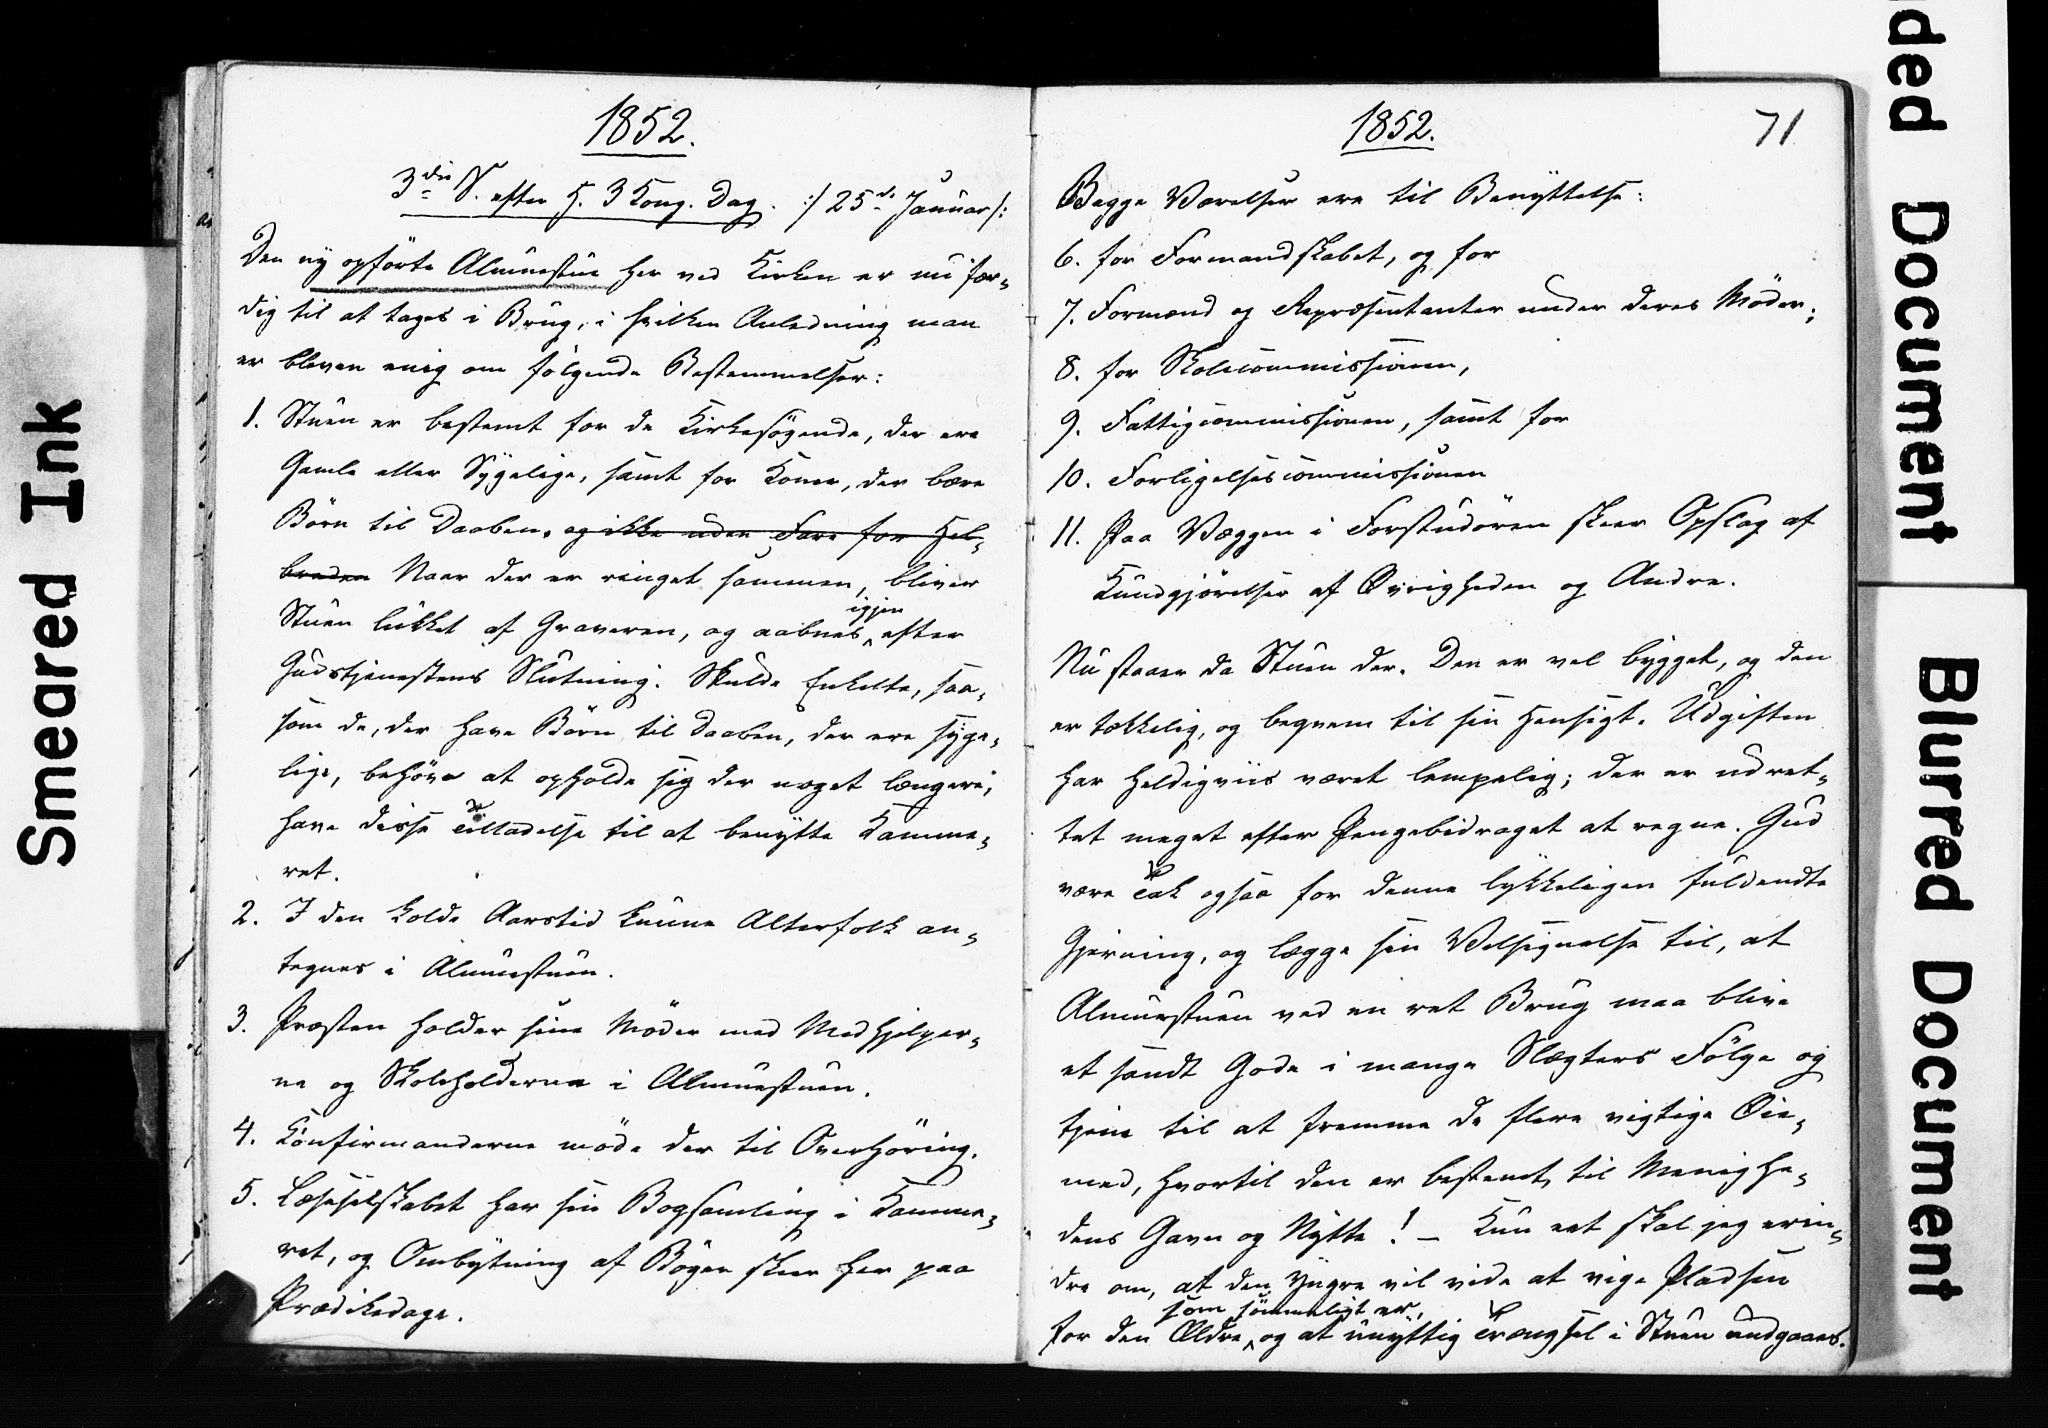 1852.
3die S. efter H. 3 Kong. Dag. :/ 25de Januar/:
Den ny opförte Almuestue her ved Kirken er nu fær-
dig til at tages i Brug, i hvilken Anledning man
er bleven enig om følgende Bestemmelser:
1. Stuen er bestemt for de Kirkesøgende, der ere
Gamle eller Sygelige, samt for Koner, der bære
Börn til Daaben. og ikke uden Fare for Hel-
breden Naar der er ringet sammen, bliver
Stuen lukket af Graveren, og aabnes igjen efter
Gudstjenestens Slutning. Skulde Enkelte, saa-
som de, der have Börn til Daaben, der ere syge-
lige, behöve at opholde sig der noget længere,
have disse Tilladelse til at benytte Kamme-
ret.
2. I den kolde Aarstid kunne Alterfolk an-
tegnes i Almuestuen.
3. Præsten holder sine Möder med Medhjelper-
ne og Skoleholderne i Almuestuen.
4. Konfirmanderne möde der til Overhöring.
5. Læseselskabet har sin Bogsamling i Kamme-
ret, og Ombytning af Böger skeer her paa
Prædikedage.
1852.
71
Begge Værelser ere til Benyttelse:
6. for Formandskabet, og for
7. Formænd og Repræsentanter under deres Möder;
8. for Skolecommissionen,
9. Fattigcommissionen, samt for
10. Forligelsescommissionen
11. Paa Væggen i Forstudören skeer Opslag af
Kundgjörelser af Øvrigheden og Andre.
Nu staaer da Stuen der. Den er vel bygget, og den
er tækkelig, og beqvem til sin Hensigt. Udgiften
har heldigviis været lempelig; der er udret-
tet meget efter Pengebidraget at regne. Gud
være Tak ogsaa for denne lykkeligen fuldendte
Gjerning, og lægge sin Velsignelse til, at
Almuestuen ved en ret Brug maa blive
et sandt Gode i mange Slægters Fölge og
tjene til at fremme de flere vigtige Øie-
med, hvortil den er bestemt, til Menighe-
dens Gavn og Nytte! — Kun eet skal jeg erin-
dre om, at den Yngre vil vide at vige Pladsen
for den Ældre, som sömmeligt er, og at unyttig Trængsel i Stuen undgaaes.
Smeared Ink
ded Document
Blurred Document